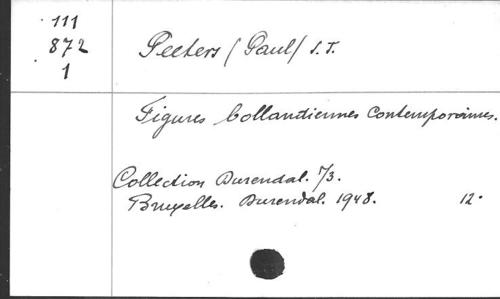 111
872
1
Peeters (Paul) S.J.
Figures bollandiennes contemporaines.
Collection Durendal. 73.
Bruxelles. Durendal. 1948. 12°